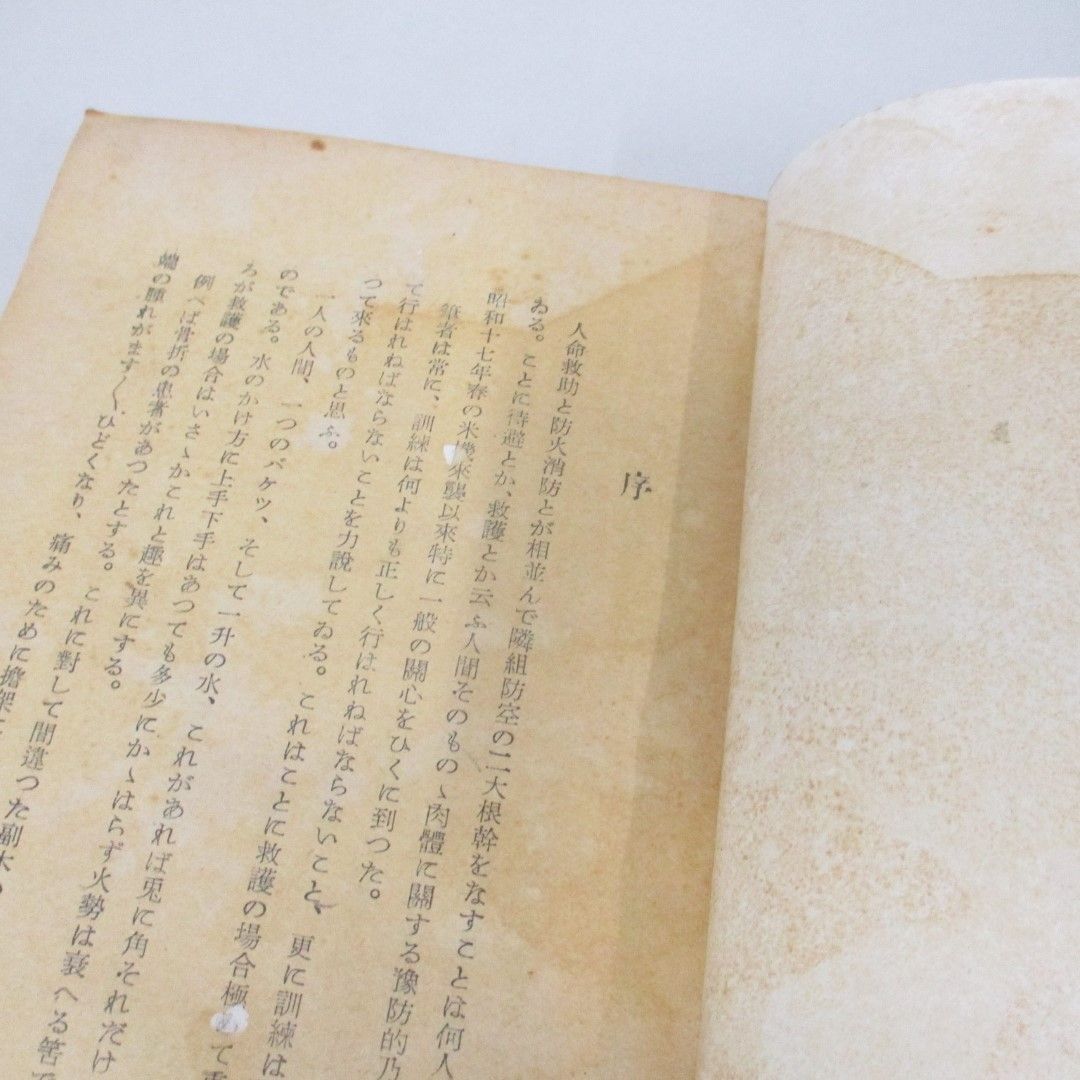 序
人命救助と防火消防とが相並んで隣組防空の二大根幹をなすことは何人
ゐる。ことに待避とか、救護とか云ふ人間そのものゝ肉體に關する豫防的乃
昭和十七年春の米機來襲以來特に一般の關心をひくに到つた。
筆者は常に、訓練は何よりも正しく行はれねばならないこと、更に訓練は
て行はれねばならないことを力說してゐる。これはことに救護の場合極めて
つて來るものと思ふ。
一人の人間、一つのバケツ、そして一升の水、これがあれば兎に角それだけ
のである。水のかけ方に上手下手はあつても多少にかゝはらず火勢は衰へる筈で
ろが救護の場合はいさゝかこれと趣を異にする。
例へば骨折の患者があつたとする。これに對して間違つた副木
端の腫れがます〳〵ひどくなり、痛みのために擔架